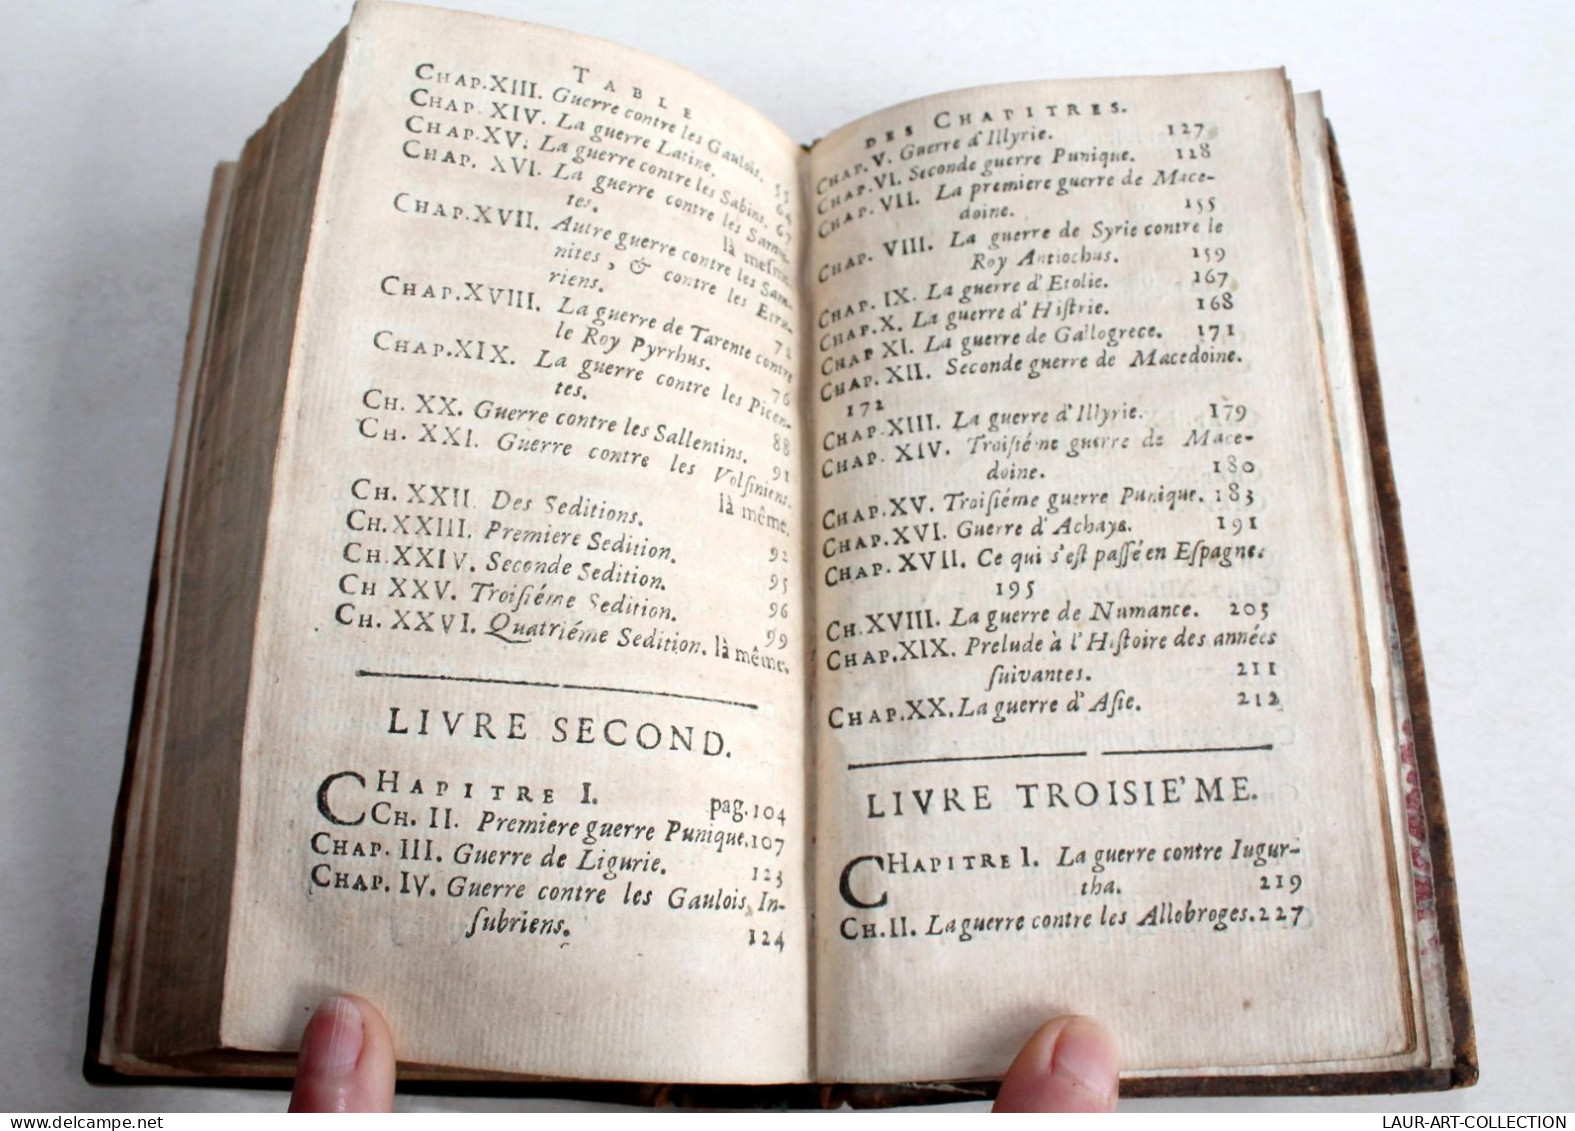 TABLE
CHAP.XIII. Guerre contre les Gaulois. 55
CHAP. XIV. La guerre Latine. 64
CHAP.XV. La guerre contre les Sabins. 67
CHAP. XVI. La guerre contre les Samni-
tes. là mesme.
CHAP.XVII. Autre guerre contre les Sam-
nites, & contre les Etru-
riens. 72
CHAP.XVIII. La guerre de Tarente contre
le Roy Pyrrhus. 76
CHAP.XIX. La guerre contre les Picen-
tes. 88
CH. XX. Guerre contre les Sallentins. 91
CH. XXI. Guerre contre les Volſiniens.
là même.
CH. XXII. Des Seditions. 92
CH.XXIII. Premiere Sedition. 95
CH.XXIV. Seconde Sedition. 96
CH XXV. Troiſiéme Sedition. 99
CH. XXVI. Quatriéme Sedition. là même.
LIVRE SECOND.
CHAPITRE I. pag. 104
CH. II. Premiere guerre Punique. 107
CHAP. III. Guerre de Ligurie. 123
CHAP. IV. Guerre contre les Gaulois In-
ſubriens. 124
DES CHAPITRES.
CHAP. V. Guerre d'Illyrie. 127
CHAP. VI. Seconde guerre Punique. 128
CHAP. VII. La premiere guerre de Mace-
doine. 155
CHAP. VIII. La guerre de Syrie contre le
Roy Antiochus. 159
CHAP. IX. La guerre d'Etolie. 167
CHAP. X. La guerre d'Hiſtrie. 168
CHAP XI. La guerre de Gallogrece. 171
CHAP. XII. Seconde guerre de Macedoine.
172
CHAP. XIII. La guerre d'Illyrie. 179
CHAP. XIV. Troiſiéme guerre de Mace-
doine. 180
CHAP. XV. Troiſiéme guerre Punique. 183
CHAP. XVI. Guerre d'Achaye. 191
CHAP. XVII. Ce qui s'eſt paſſé en Eſpagne.
195
CH.XVIII. La guerre de Numance. 203
CHAP.XIX. Prelude à l'Hiſtoire des années
ſuivantes. 211
CHAP.XX. La guerre d'Aſie. 212
LIVRE TROISIE'ME.
CHAPITRE I. La guerre contre Iugur-
tha. 219
CH.II. La guerre contre les Allobroges. 227
www.delcampe.net
LAUR-ART-COLLECTION